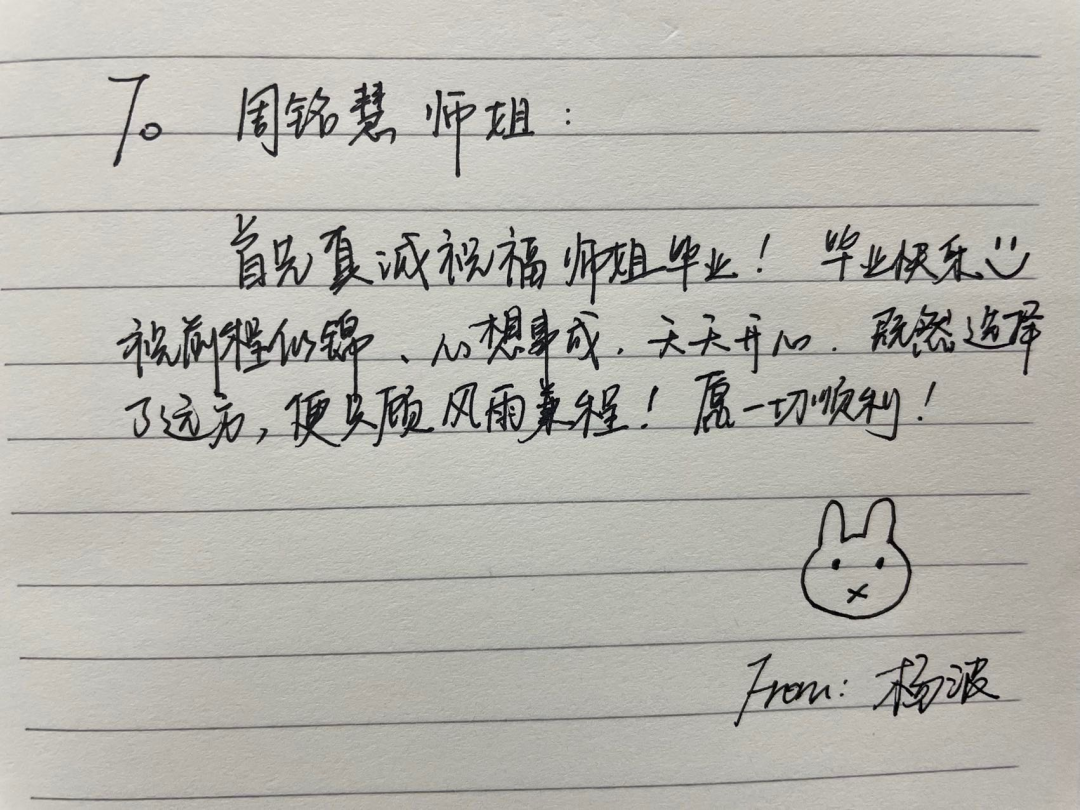 To 周铭慧师姐：
首先真诚祝福师姐毕业！毕业快乐
祝前程似锦、心想事成、天天开心．既然选择
了远方，便只顾风雨兼程！愿一切顺利！
From：杨波